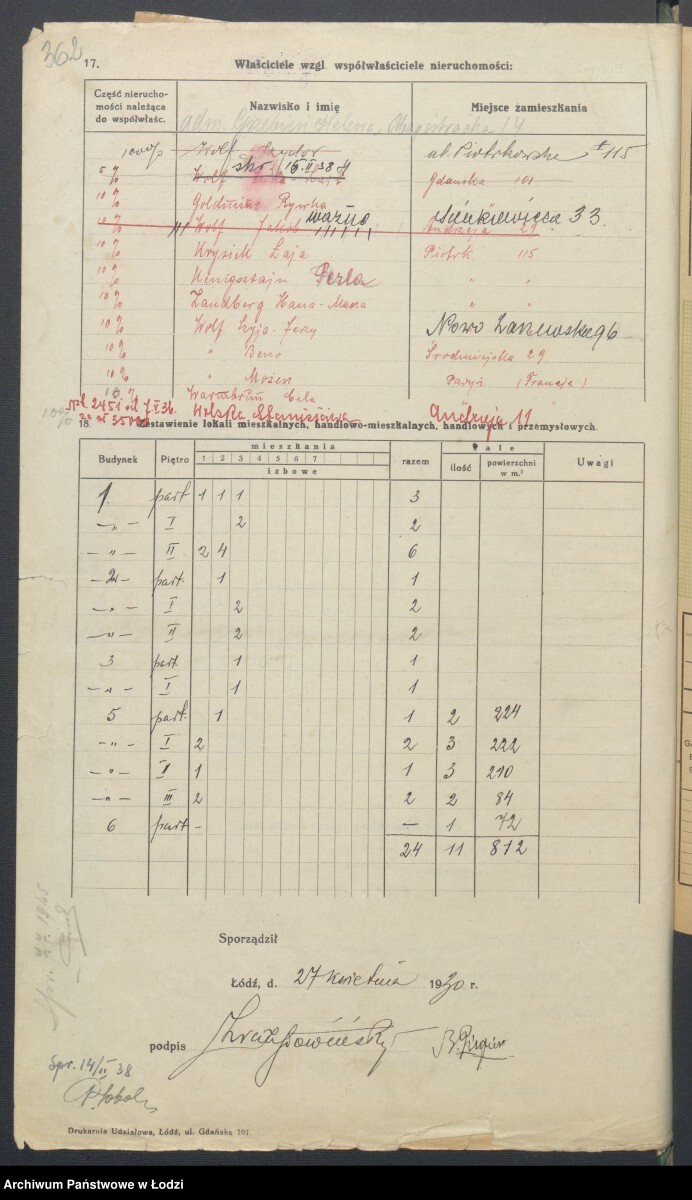 362
17. Właściciele wzgl. współwłaściciele nieruchomości:
Część nierucho-
mości należąca
do współwłaśc.
Nazwisko i imię
Miejsce zamieszkania
adm. Helena, 14
100% Wolf ul. Piotrkowska # 115
5% Wolf skr. 16.II.38 Gdańska 101
10% Goldminc Rywka
10% Wolf Jakób ważne Sienkiewicza 33. Andrzeja 29
10% Krysiek Łaja Piotrk 115
10% Kenigsztajn Perla " "
10% Landberg Hana-Masza " "
10% Wolf Szyja-Jerzy Nowo Zarzewska 96
10% " Beno Śródmiejska 29
10% " Mozes Paryż (Francja)
10% Warmbrun Cela
N-l. 2451 od 7.V.36. Wolska Stanisława Andrzeja 11
18. Zestawienie lokali mieszkalnych, handlowo-mieszkalnych, handlowych i przemysłowych.
Budynek Piętro mieszkania razem Sale Uwagi
1 2 3 4 5 6 7
izbowe
ilość powierzchni w m.²
1. part 1 1 1 3
— „ — I 2 2
— „ — II 2 4 6
— 2 — part. 1 1
— „ — I 2 2
— „ — II 2 2
3 part. 1 1
— „ — I 1 1
5 part. 1 1 2 224
— „ — I 2 2 3 222
— „ — II 1 1 3 210
— „ — III 2 2 2 84
6 part - — 1 72
24 11 812
Sporządził
Łódź, d. 27 kwietnia 1930 r.
podpis
Spr. 7.7.1945
Spr. 14/II 38
Drukarnia Udziałowa, Łódź, ul. Gdańska 101.
Archiwum Państwowe w Łodzi